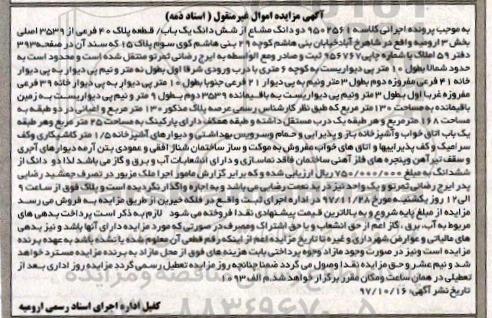 آگهی مزایده اموال غیرمنقول ( اسناد ذمه)
به موجب پرونده اجرائی کلاسه ۹۵۰۲۵۶۱ دو دانگ مشاع از شش دانگ یک باب/ قطعه پلاک ۴۰ فرعی از ۳۵۳۹ اصلی
بخش ۳ ارومیه واقع در شاهرخ آباد خیابان بنی هاشم کوچه ۲۹ بنی هاشم کوی سوم پلاک ۱۵ که سند آن در صفحه ۳۹۳
دفتر ۵۹ املاک با شماره چاپی ۹۵۶۷۶۷ ثبت و صادر و مع الواسطه به ایرج رضائی تمرتو منتقل شده است و محدود است به
حدود شمالا بطول ۱۰ متر پی دیواریست به کوچه ۶ متری با درب ورودی شرقا اول بطول نه متر و نیم پی دیوار به پی دیوار
خانه ۴۱ فرعی مفروزه دوم بطول ۳ متر و نیم به پی دیوار ۴۱ فرعی جنوبا بطول ۱۰ متر پی به پی دیوار خانه ۳۹ فرعی
مفروزه غربا اول بطول ۳ متر و نیم پی دیواریست به باقیمانده ۳۵۳۹ دوم بطول ۹ متر و نیم پی دیواریست به زمین
باقیمانده به مساحت ۱۳۰ متر مربع که طبق نظر کارشناس رسمی عرصه پلاک مذکور ۱۳۰ متر مربع و اعیانی در دو طبقه به
مساحت ۱۶۸ مترمربع و هر طبقه یک درب مستقل داشته و طبقه همکف دارای پارکینگ به مساحت ۲۵ متر مربع و هر طبقه
یک باب اتاق خواب و آشپزخانه باز و پذیرایی و حمام و سرویس بهداشتی و دیوارهای آشپزخانه ۱/۵ متر کاشیکاری و کف
سرامیک و کف پذیراییها و اتاق های خواب مفروش به موکت و ساز ساختمان شناژ افقی و عمودی بتن آرمه دیوارهای آجری
و سقف تیرآهن و پنجره های فلز آهنی ساختمان فاقد نماسازی و دارای انشعابات آب و برق و گاز می باشد لذا دو دانگ از
ششدانگ به مبلغ ۷۵۰/۰۰۰/۰۰۰ ریال ارزیابی شده و که برابر گزارش مامور اجرا ملک مزبور در تصرف جمشید رضایی
پدر ایرج رضائی تمرتو و یک واحد نیز در ید نعمت رضایی می باشد و به اجاره واگذار نگردیده است و پلاک فوق از ساعت ۹
الی ۱۲ روز یکشنبه مورخ ۹۷/۱۱/۲۸ در اداره اجرای ثبت واقع در فلکه خیرین از طریق مزایده به فروش می رسد
مزایده از مبلغ پایه شروع و به بالاترین قیمت پیشنهادی نقدا فروخته می شود لازم به ذکر است پرداخت بدهی های
مربوط به آب، برق، گاز اعم از حق انشعاب و یا حق اشتراک و مصرف در صورتی که مورد مزایده دارای آنها باشد و نیز بدهی
های مالیاتی و عوارض شهرداری و غیره تا تاریخ مزایده اعم از اینکه رقم قطعی آن معلوم شده یا نشده باشد به عهده برنده
مزایده است و نیز در صورت وجود مازاد وجوه پرداختی بابت هزینه های فوق از محل مازاد به برنده مزایده مسترد خواهد
شد و نیم عشر و حق مزایده نقدا وصول می گردد ضمنا چنانچه روز مزایده تعطیل رسمی گردد مزایده روز اداری بعد از
تعطیلی در همان ساعت و مکان مقرر برگزار خواهد شد. م الف ۱۰۹۳
تاریخ نشر آگهی: ۹۷/۱۰/۱۶
کفیل اداره اجرای اسناد رسمی ارومیه